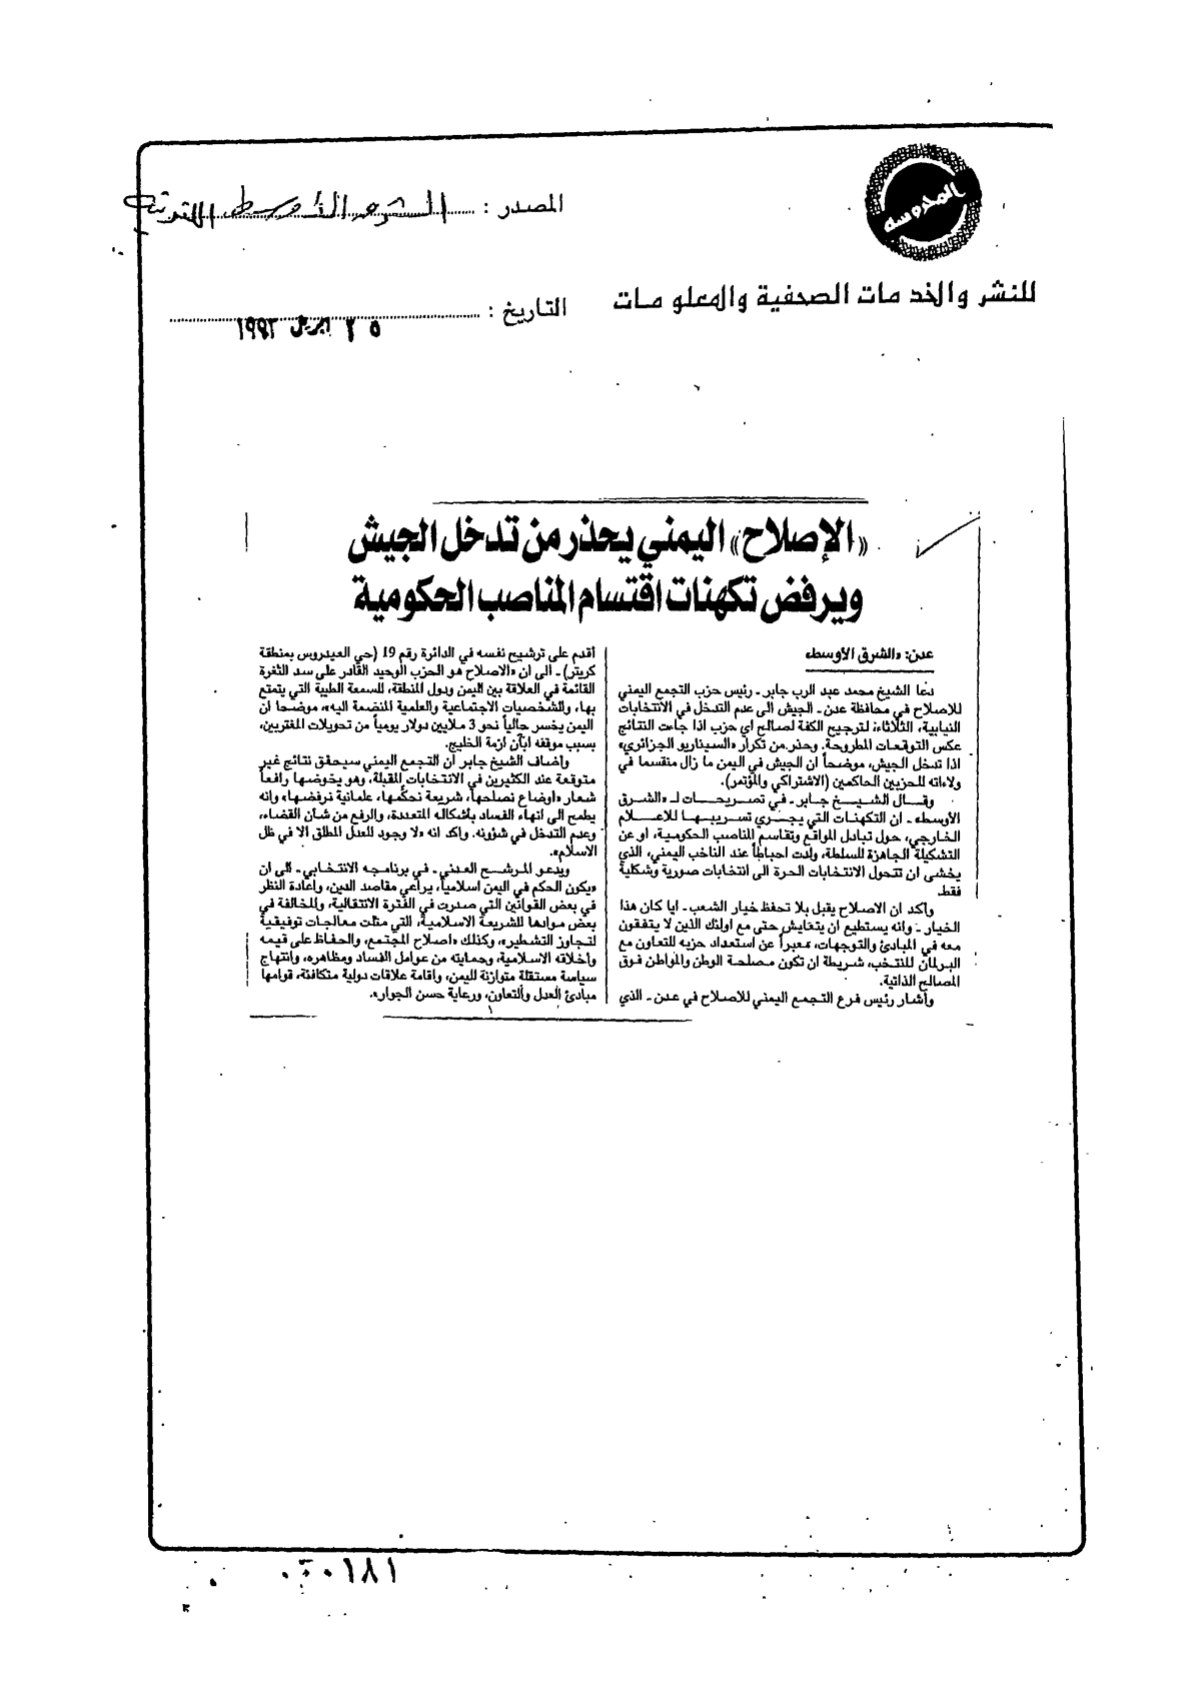 المحروسه
المصدر : الشرق الأوسط اللندنية
للنشر والخدمات الصحفية والمعلومات
التاريخ : ٢٥ ابريل ١٩٩٣
«الإصلاح» اليمني يحذر من تدخل الجيش
ويرفض تكهنات اقتسام المناصب الحكومية
عدن: «الشرق الأوسط»
دعا الشيخ محمد عبد الرب جابر ـ رئيس حزب التجمع اليمني
للاصلاح في محافظة عدن ـ الجيش الى عدم التدخل في الانتخابات
النيابية، الثلاثاء، لترجيح الكفة لصالح اي حزب اذا جاءت النتائج
عكس التوقعات المطروحة. وحذر من تكرار «السيناريو الجزائري»
اذا تدخل الجيش، موضحاً ان الجيش في اليمن ما زال منقسما في
ولاءاته للحزبين الحاكمين (الاشتراكي والمؤتمر).
وقـال الشيـخ جـابر ـ في تصـريحـات لـ «الشرق
الأوسط» ـ ان التكهنات التي يجـري تسـريبـهـا للاعـلام
الخارجي، حول تبادل المواقع وتقاسم المناصب الحكومية، او عن
التشكيلة الجاهزة للسلطة، ولدت احباطاً عند الناخب اليمني، الذي
يخشى ان تتحول الانتخابات الحرة الى انتخابات صورية وشكلية
فقط.
واكد ان الاصلاح يقبل بلا تحفظ خيار الشعب ـ ايا كان هذا
الخيار ـ وانه يستطيع ان يتعايش حتى مع اولئك الذين لا يتفقون
معه في المبادئ والتوجهات، معبراً عن استعداد حزبه للتعاون مع
البرلمان المنتخب، شريطة ان تكون مصلحة الوطن والمواطن فوق
المصالح الذاتية.
وأشار رئيس فرع التجمع اليمني للاصلاح في عدن ـ الذي
أقدم على ترشيح نفسه في الدائرة رقم 19 (حي العيدروس بمنطقة
كريتر) ـ الى ان «الاصلاح هو الحزب الوحيد القادر على سد الثغرة
القائمة في العلاقة بين اليمن ودول المنطقة، للسمعة الطيبة التي يتمتع
بها، والشخصيات الاجتماعية والعلمية المنضمة اليه»، موضحا ان
اليمن يخسر حالياً نحو 3 ملايين دولار يومياً من تحويلات المغتربين،
بسبب موقفه ابان ازمة الخليج.
واضاف الشيخ جابر ان التجمع اليمني سيحقق نتائج غير
متوقعة عند الكثيرين في الانتخابات المقبلة، وهو يخوضها رافعاً
شعار «اوضاع نصلحها، شريعة نحكمها، علمانية نرفضها» وانه
يطمح الى انهاء الفساد بأشكاله المتعددة، والرفع من شان القضاء،
وعدم التدخل في شؤونه. واكد انه «لا وجود للعدل المطلق الا في ظل
الاسلام».
ويدعو المـرشـح العدني ـ في برنامجه الانتخابي ـ الى ان
«يكون الحكم في اليمن اسلاميا، يراعي مقاصد الدين، واعادة النظر
في بعض القوانين التي صدرت في الفترة الانتقالية، والمخالفة في
بعض موادها للشريعة الاسلامية، التي مثلت معالجات توفيقية
لتجاوز التشطير»، وكذلك «اصلاح المجتمع، والحفاظ على قيمه
واخلاقه الاسلامية، وحمايته من عوامل الفساد ومظاهره، وانتهاج
سياسة مستقلة متوازنة لليمن، واقامة علاقات دولية متكافئة، قوامها
مبادئ العدل والتعاون، ورعاية حسن الجوار».